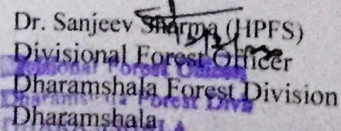 Dr. Sanjeev Sharma (HPFS)
Divisional Forest Officer
Dharamshala Forest Division
Dharamshala